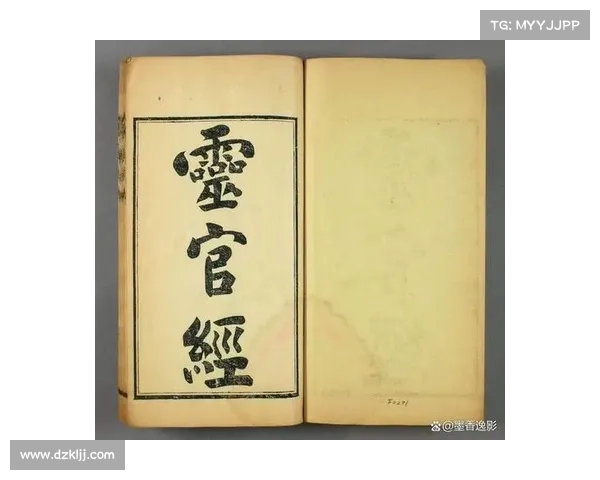 TG: MYYJJPP
靈官經
@墨香逸影
www.dzkljj.com